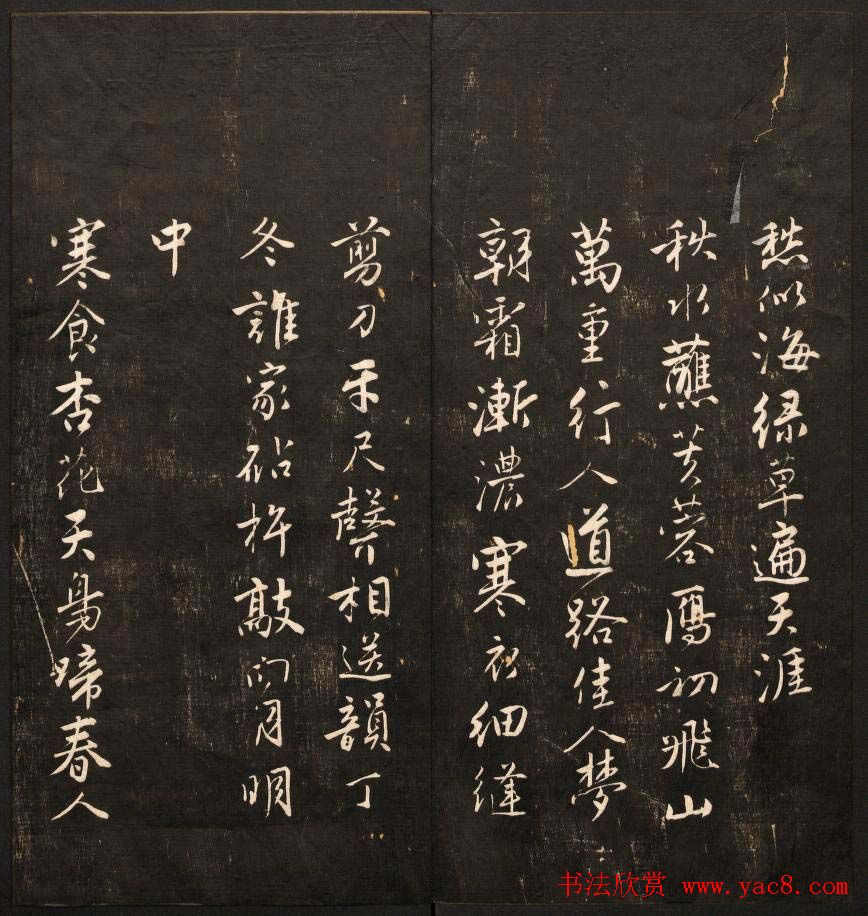 愁似海绿草遍天涯
秋水蘸芙蓉雁初飛山
萬重行人道路佳人夢
朝霜漸濃寒衣细縫
剪刀牙尺聲相送韻丁
冬誰家砧杵敲向月明
中
寒食杏花天鳥啼春人
书法欣赏 www.yac8.com